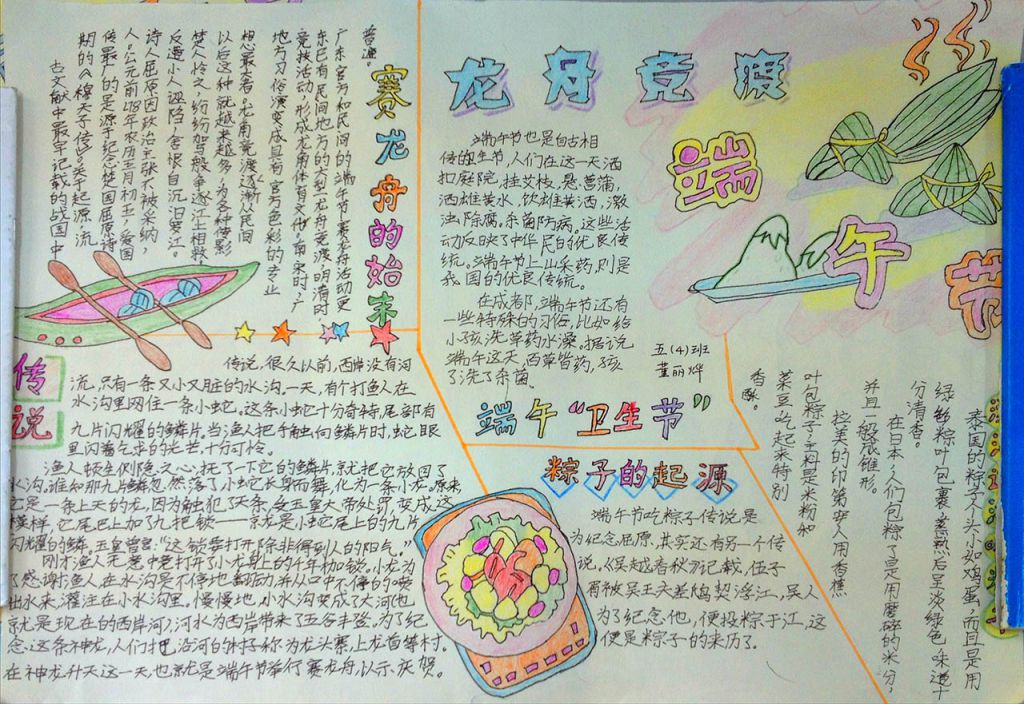 龙舟竞渡
端午节
端午节也是自古相
传的卫生节,人们在这一天洒
扫庭院,挂艾枝,悬菖蒲,
洒雄黄水,饮雄黄酒,激
浊除腐,杀菌防病。这些活
动反映了中华民的优良传
统。端午节上山采药,则是
我国的优良传统。
在成都,端午节还有
一些特殊的习俗,比如给
小孩洗草药水澡。据说
端午这天,百草皆药,孩
了洗了杀菌。
五(4)班
董丽烨
端午“卫生节”
赛龙舟的始末
古文献中最早记载的战国中
期的《穆天子传》。关于起源,流
传最广的是源于纪念楚国屈原诗
人。公元前278年农历五月初五,爱国
诗人屈原因政治主张不被采纳,
反遭小人诬陷,含恨自沉汨罗江。
楚人怜之,纷纷驾般争逐江上相救
以后这种就越来越多,为各种传影
想最大者,龙舟竞渡逐渐从民间
地方习俗演变成具有官方色彩的专业
竞技活动,形成龙舟体育文化。南宋时,广
东已有民间地方的大型龙舟竞渡,明清时
广东官方和民间的端午节赛龙舟活动更
普遍。
传说
传说,很久以前,西岸没有河
流,只有一条又小又脏的水沟。一天,有个打鱼人在
水沟里网住一条小蛇。这条小蛇十分奇特,尾部有
九片闪耀的鳞片。当渔人把手触向鳞片时,蛇眼
里闪着乞求的光芒,十分可怜。
渔人顿生恻隐之心,抚了一下它的鳞片,就把它放回了
水沟。谁知那九片鳞忽然落了,小蛇长身而舞,化为一条小龙。原来
它是一条上天的龙,因为触犯了天条,受玉皇大帝处罚,变成这
模样,它尾巴上加了九把锁——京龙是小蛇尾上的九片
闪耀的鳞。玉皇曾言:“这锁要打开,除非得到人的阳气。”
刚才渔人无意中竟打开了小龙身上的千年枷锁。小龙为
了感谢渔人,在水沟里不停地翻动,并从口中不停的喷
出水来,灌注在小水沟里。慢慢地,小水沟变成了大河,也
就是现在的西岸河;河水为西岸带来了五谷丰登。为了纪
念这条神龙,人们把沿河的村子称为龙头寨、上龙首等村。
在神龙升天这一天,也就是端午节举行赛龙舟,以示庆贺。
粽子的起源
端午节吃粽子传说是
为纪念屈原,其实还有另一个传
说,《吴越春秋》记载,伍子
胥被吴王夫差赐契浮江,吴人
为了纪念他,便投粽于江,这
便是粽子的来历了。
泰国的粽子个头小如鸡蛋,而且是用
绿色粽叶包裹,蒸熟后呈淡绿色,味道十
分清香。
在日本,人们包粽子是用磨碎的米分,
并且一般呈锥形。
拉美的印第安人用香蕉
叶包粽子,主料是米粉和
菜豆吃起来特别
香酥。